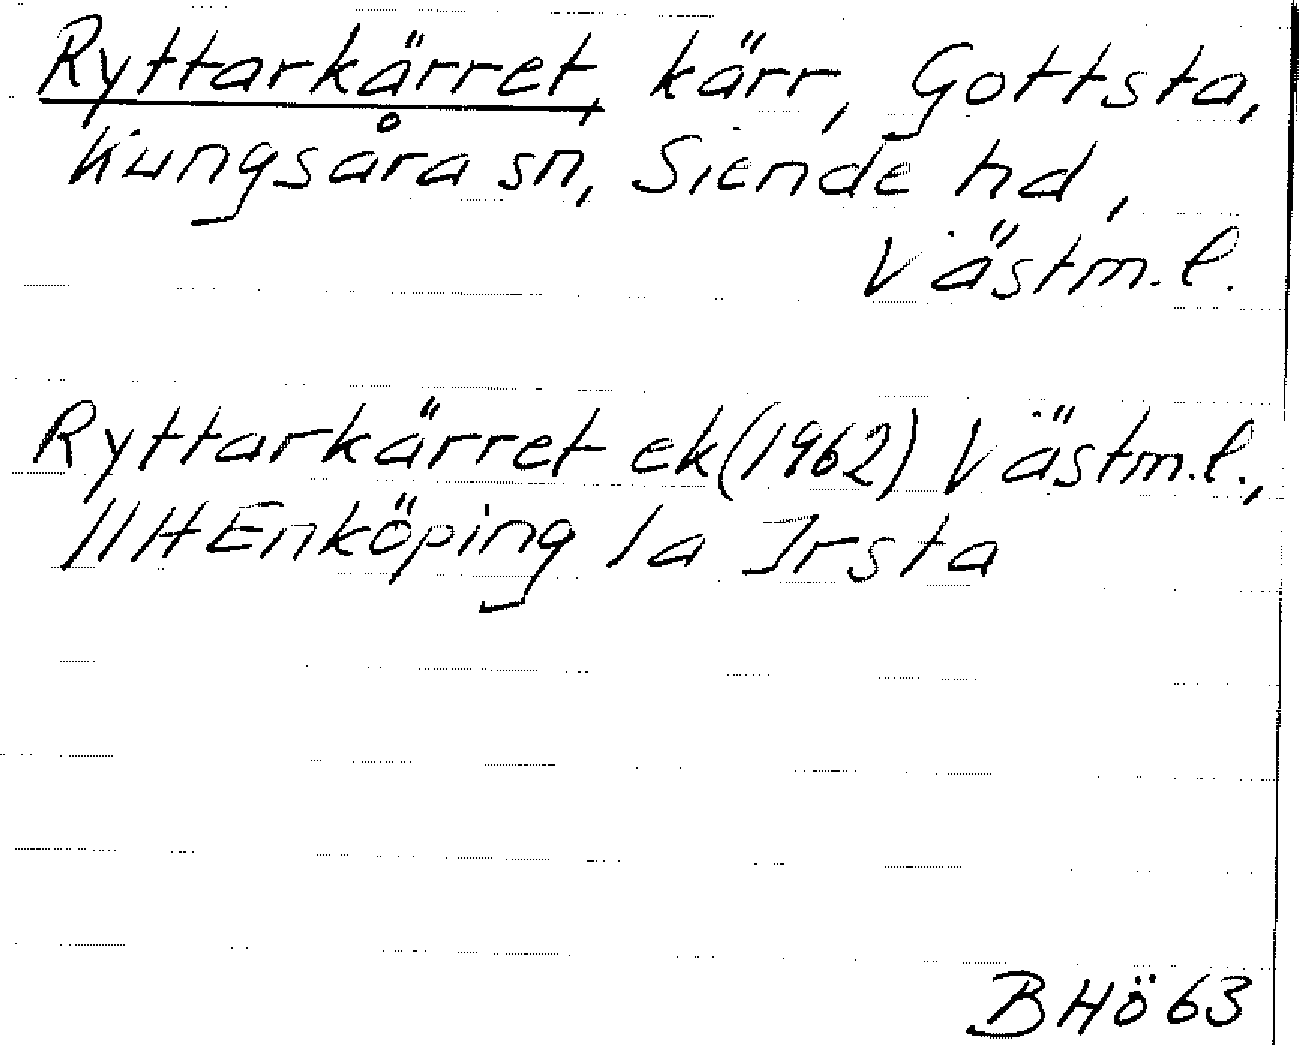 Ryttarkärret, kärr, Gottsta,
Kungsåra sn, Siende hd,
Västm.l.
Ryttarkärret ek (1962) Västm.l.,
11H Enköping 1a Irsta
BHö 63